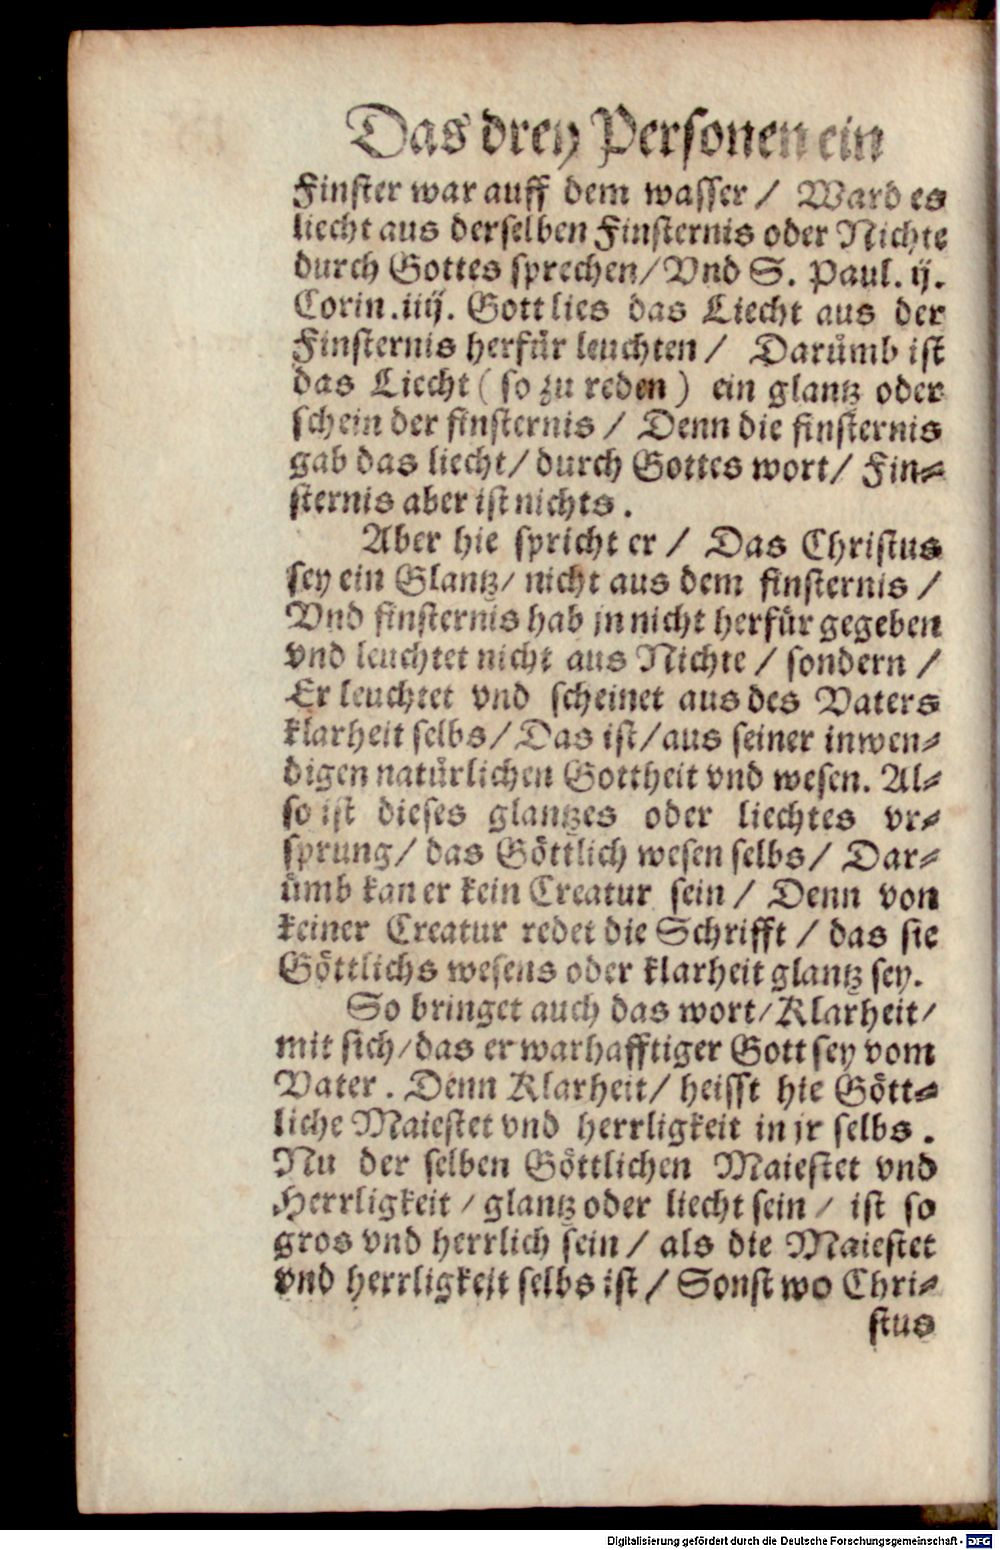 Das drey Personen ein
Finster war auff dem wasser / Ward es
liecht aus derselben Finsternis oder Nichte
durch Gottes sprechen/ Vnd S. Paul. ij.
Corin. iiij. Gott lies das Liecht aus der
Finsternis herfür leuchten / Darümb ist
das Liecht ( so zu reden ) ein glantz oder
schein der finsternis / Denn die finsternis
gab das liecht/ durch Gottes wort/ Fin⸗
sternis aber ist nichts .
Aber hie spricht er / Das Christus
sey ein Glantz/ nicht aus dem finsternis /
Vnd finsternis hab jn nicht herfür gegeben
vnd leuchtet nicht aus Nichte / sondern /
Er leuchtet vnd scheinet aus des Vaters
klarheit selbs/ Das ist/ aus seiner inwen⸗
digen natürlichen Gottheit vnd wesen. Al⸗
so ist dieses glantzes oder liechtes vr⸗
sprung/ das Göttlich wesen selbs/ Dar⸗
ümb kan er kein Creatur sein / Denn von
keiner Creatur redet die Schrifft / das sie
Göttlichs wesens oder klarheit glantz sey.
So bringet auch das wort/ Klarheit/
mit sich/ das er warhafftiger Gott sey vom
Vater . Denn Klarheit/ heisst hie Gött⸗
liche Maiestet vnd herrligkeit in jr selbs .
Nu der selben Göttlichen Maiestet vnd
Herrligkeit / glantz oder liecht sein / ist so
gros vnd herrlich sein / als die Maiestet
vnd herrligkeit selbs ist / Sonst wo Chri⸗
stus
Digitalisierung gefördert durch die Deutsche Forschungsgemeinschaft - DFG